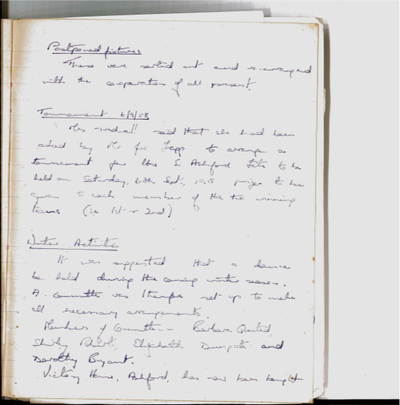 Postponed fixtures
These were sorted out and rearranged
with the cooperation of all present.
Tournament 6/9/58
Mrs said that she had been
asked by Mr to arrange a
tournament for the S. Ashford Fete to be
held on Saturday, Sept.,
given to each member of the two winning
teams (ie 1st or 2nd)
Winter Activities
It was suggested that a dance
be held during the coming winter season.
A committee was therefore set up to make
all necessary arrangements.
Members of Committee - Barbara
Shirley Elizabeth and
Dorothy Bryant.
Victory Home, Ashford, has now been